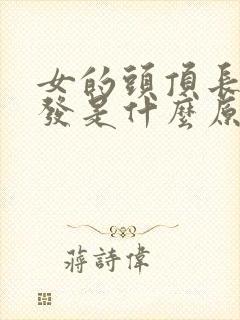 女的頭頂長
發是什麼原
蔣詩偉